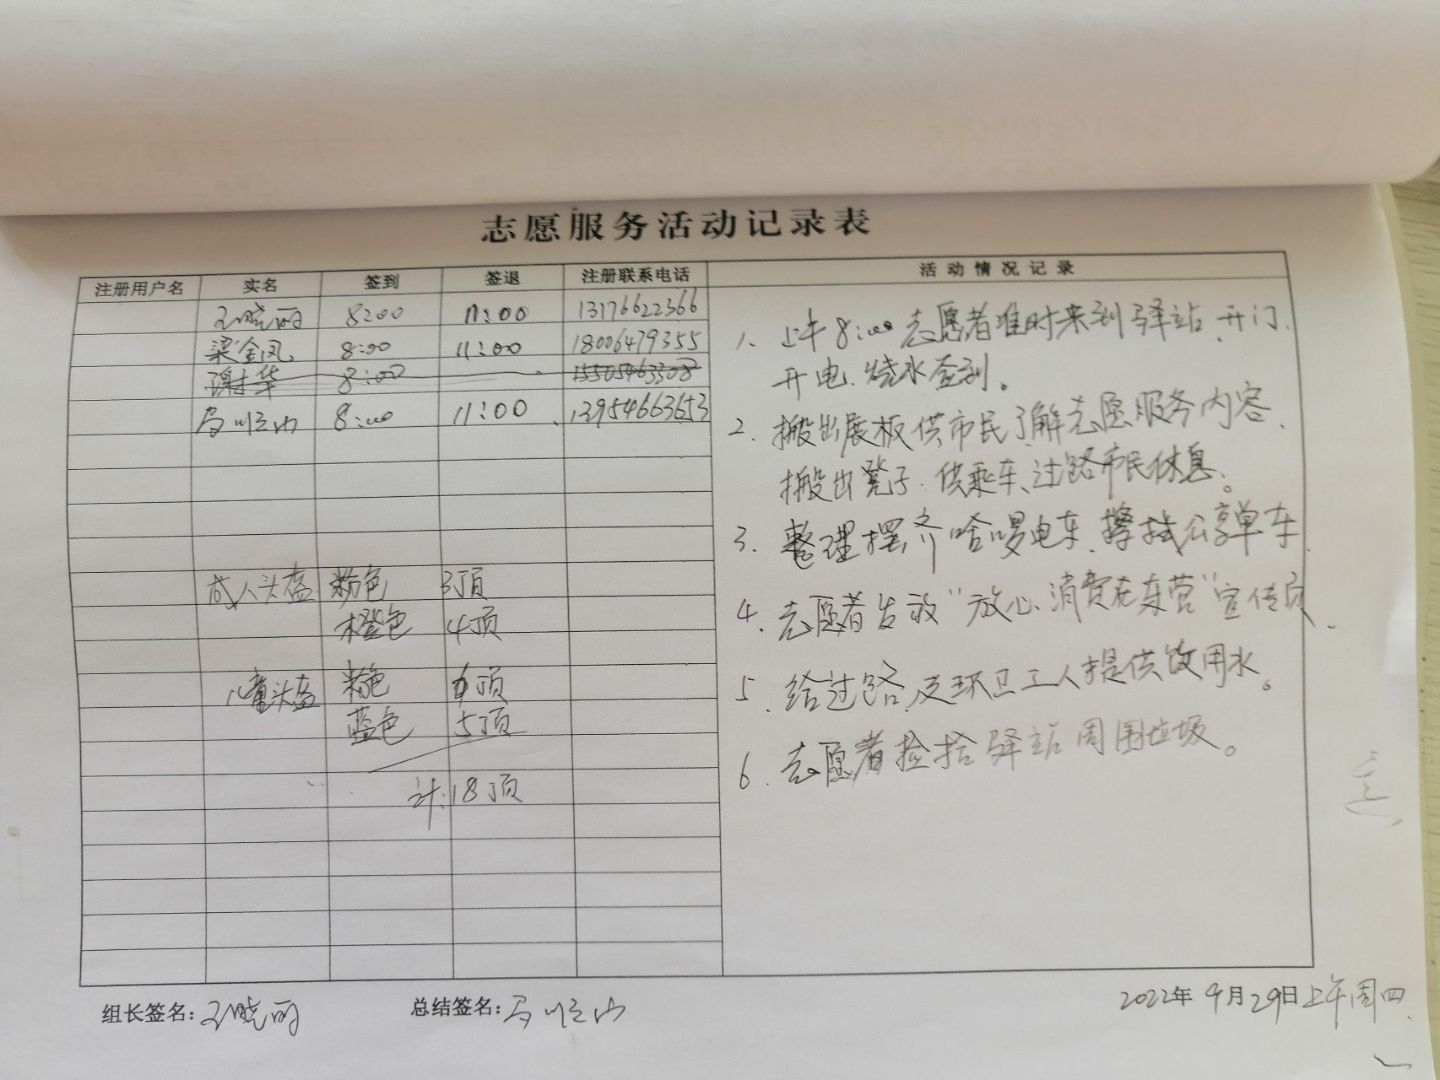 志愿服务活动记录表
注册用户名 实名 签到 签退 注册联系电话 活动情况记录
王晓丽 8:00 11:00 13176622366
梁金凤 8:00 11:00 18006479355
谢华 8:00 15505463308
马顺山 8:00 11:00 13954663653
成人头盔 粉色 3顶
橙色 4顶
儿童头盔 粉色 6顶
蓝色 5顶
计:18顶
1、上午8:00志愿者准时来到驿站、开门、
开电、烧水签到。
2、搬出展板供市民了解志愿服务内容、
搬出凳子、供乘车、过路市民休息。
3、整理摆齐哈啰电车、擦拭公享单车
4、志愿者发放“放心消费在东营”宣传页、
5、给过路及环卫工人提供饮用水。
6、志愿者捡拾驿站周围垃圾。
组长签名:王晓丽 总结签名:马顺山 2022年9月29日上午周四